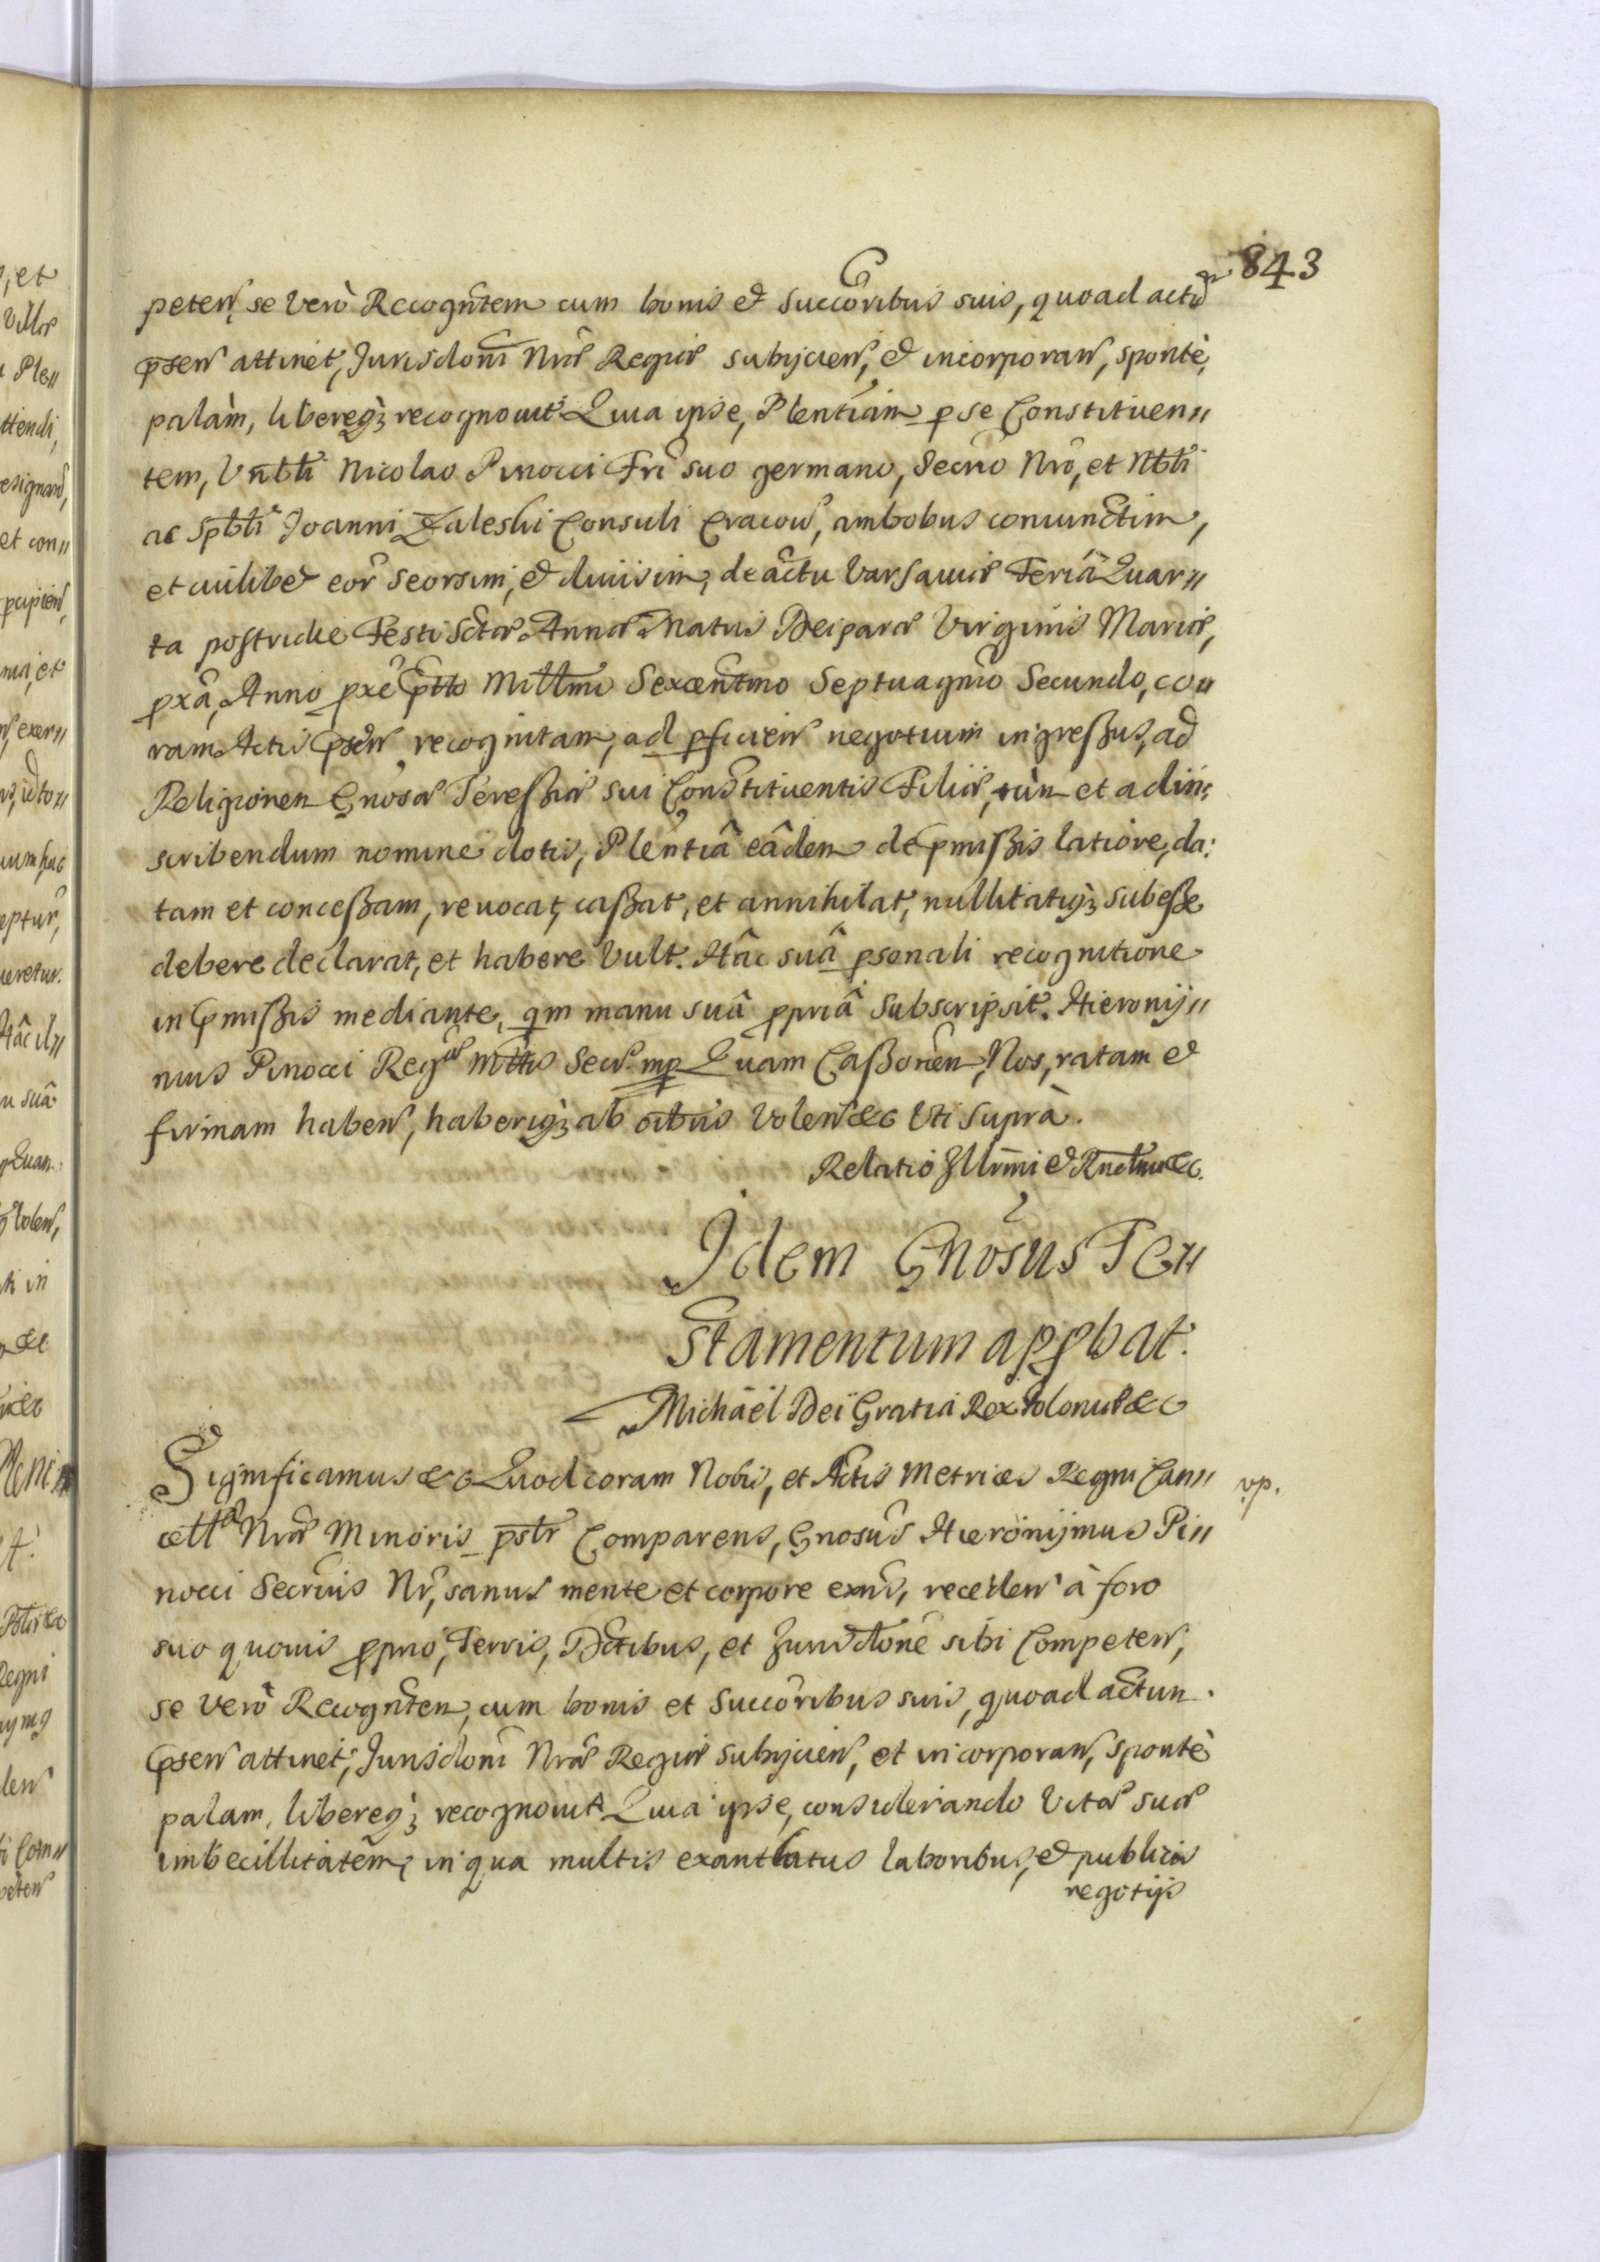 843
peten, se Verò Recogntem cum bonis et Succoribus suis, quoad actu
pnsen attinet, Jurisdoni Nræ Regiæ subijcien, et incorporan, spontè,
palàm, libereq; recognovit Quia ipse, Plentiam p se Constituen
tem, Vnbli Nicolao Pinocci Fri suo germano, Secrio Nro, et Nbli
ac Spbli Joanni Zaleski Consuli Cracou, ambobus coniunctim,
et cuilibet eor seorsim, et diuisim, de actu Varsauiæ Feriâ Quar
ta postridie Festi Sctæ Annæ Matris Deiparæ Virginis Mariæ,
pxâ, Anno pxe ptto Millmo Sexcentmo Septuagmo Secundo, co
ram Actis pnsen recognitam, ad pficien negotium ingressus, ad
Religionem Gnosæ Teressiæ sui Constituentis Filiæ, tùm et ad in
scribendum nomine dotis, Plentiâ eâdem de pmissis latiore, da:
tam et concessam, reuocat, cassat, et annihilat, nullitatiq; subesse
debere declarat, et habere Vult. Hâc suâ psonali recognitione
in pmissis mediante, qm manu suâ ppriâ subscripsit. Hieronij
mus Pinocci Regæ Mttis Secr mp Quam Cassonem, Nos, ratam et
firmam haben, haberiq; ab oibus Volen &c Vti suprà.
Relatio Illmi et Rndmi &c.
Idem Gnosus Te
stamentum appbat.
Michaël Dei Gratia Rex Poloniæ &c
Significamus &c Quod coram Nobis, et Actis Metrices Regni Can
cellæ Nræ Minoris pslr Comparens, Gnosus Hieronijmus Pi
nocci Secrius Nr, sanus mente et corpore exns, receden à foro
suo quouis pprio, Terris, Dctibus, et Jurisdctone sibi Competen,
se verò Recognten, cum bonis et Succoribus suis, quoad actum
pnsen attinet, Jurisdoni Nræ Regiæ subijcien, et incorporan, spontè
palam, libereq; recognouit Quia ipse, considerando Vitæ suæ
imbecillitatem, in qua multis exantlatus laboribus, et publicis
negotijs
vp.